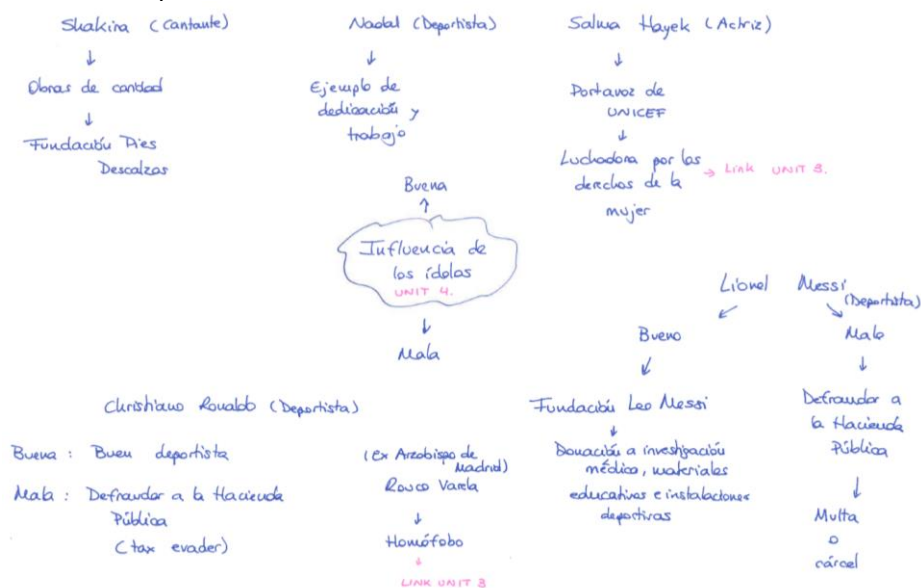 Shakira (Cantante)
↓
Obras de caridad
↓
Fundación Pies
Descalzos
Nadal (Deportista)
↓
Ejemplo de
dedicación y
trabajo
Salma Hayek (Actriz)
↓
Portavoz de
UNICEF
↓
Luchadora por los
derechos de la → Link UNIT 3.
mujer
Buena
↑
Influencia de
los ídolos
UNIT 4.
↓
Mala
Lionel Messi
(Deportista)
Bueno
Fundación Leo Messi
↓
Donación a investigación
médica, materiales
educativos e instalaciones
deportivas
Malo
↓
Defraudar a
la Hacienda
Pública
↓
Multa
o
cárcel
Christiano Ronaldo (Deportista)
Buena : Buen deportista
Mala : Defraudar a la Hacienda
Pública
(tax evader)
(ex Arzobispo de
Madrid)
Rouco Varela
↓
Homófobo
↓
LINK UNIT 3